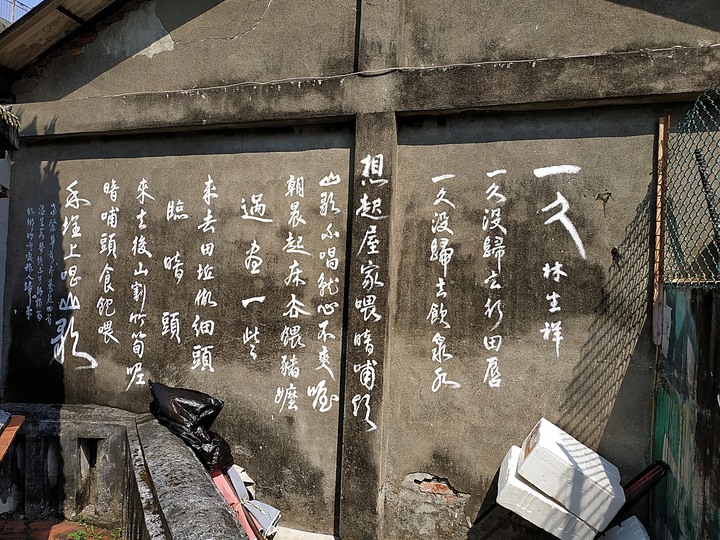 一久 林生祥
一久沒歸去行田唇
一久沒歸去飲泉水
想起屋家喂暗哺頭
山歌不唱就心不爽喔
朝晨起床餵豬嬤
過晝一些
來去田坵做細頭
臨暗頭
來去後山割竹筍喔
暗哺頭食飽喂
禾埕上唱山歌